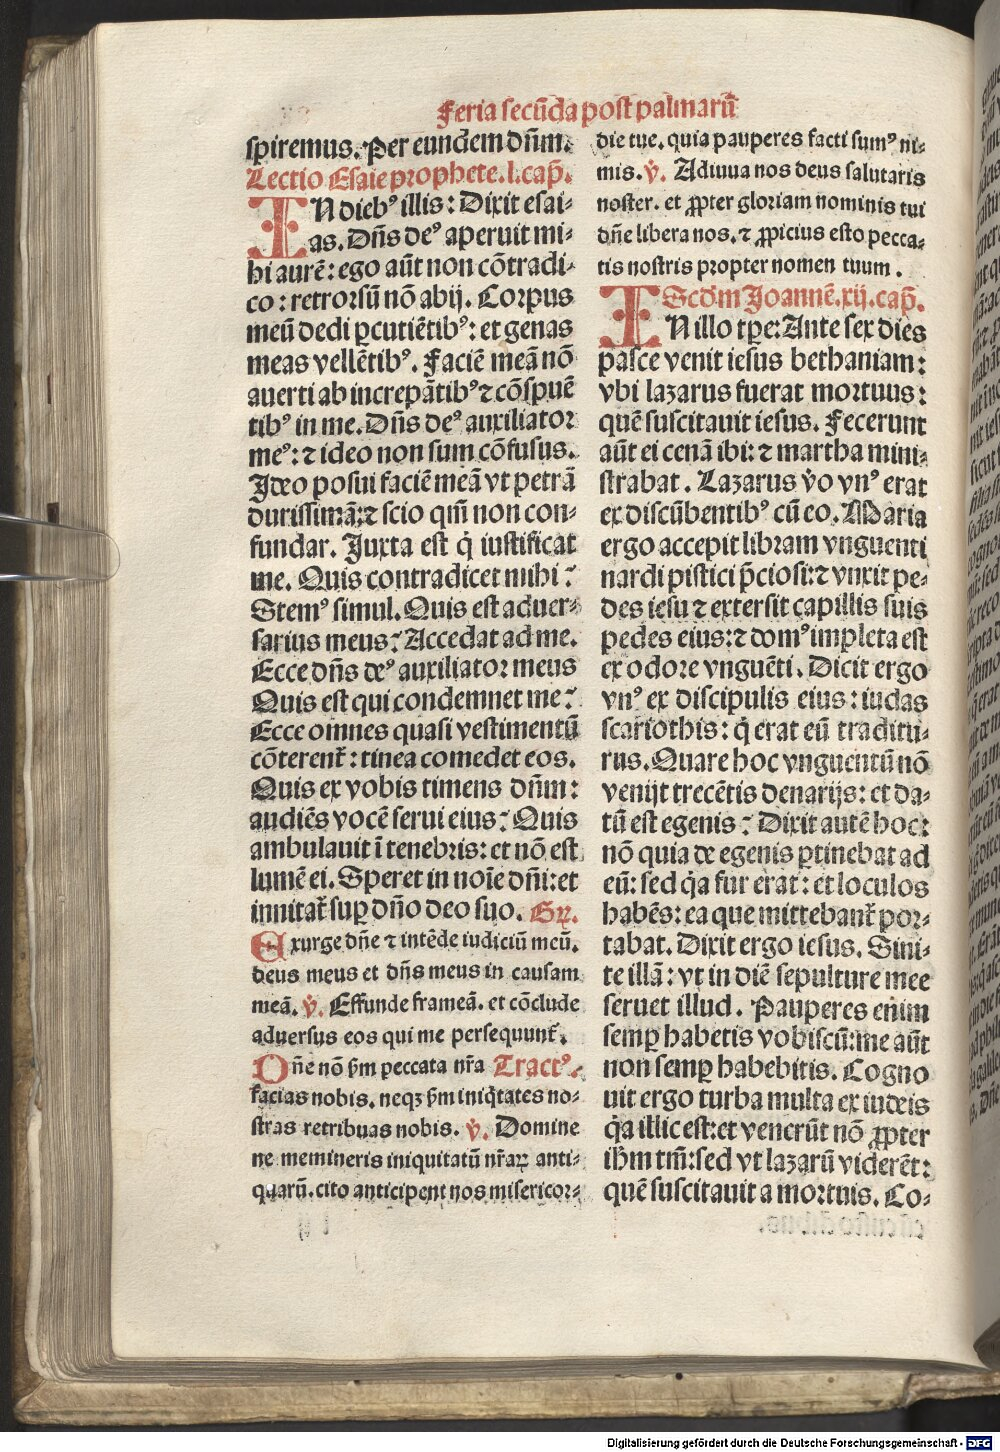 Feria secũda post palmarũ
spiremus. Per eundem dñm.
Lectio Esaie prophete. l. cap̃.
IN diebꝰ illis: Dixit esai-
as. Dñs deꝰ aperuit mi-
hi aurẽ: ego aũt non cõtradi-
co: retrorsũ nõ abij. Corpus
meũ dedi ꝑcutiẽtibꝰ: et genas
meas vellẽtibꝰ. Faciẽ meã nõ
auerti ab increpãtibꝰ ⁊ cõspuẽ
tibꝰ in me. Dñs deꝰ auxiliator
meꝰ: ⁊ ideo non sum cõfusus.
Ideo posui faciẽ meã vt petrã
durissimã: ⁊ scio qm̃ non con-
fundar. Juxta est q̇ iustificat
me. Quis contradicet mihi?
Stemꝰ simul. Quis est aduer-
sarius meus? Accedat ad me.
Ecce dñs deꝰ auxiliator meus
Quis est qui condemnet me?
Ecce omnes quasi vestimentũ
cõterent᷑: tinea comedet eos.
Quis ex vobis timens dñm:
audiẽs vocẽ serui eius? Quis
ambulauit ĩ tenebris: et nõ est
lumẽ ei. Speret in noĩe dñi: et
innitat᷑ suꝑ dño deo suo. Gr̃.
Exurge dñe ⁊ intẽde iudiciũ meũ.
deus meus et dñs meus in causam
meã. v̇. Effunde frameã. et cõclude
aduersus eos qui me persequunt᷑.
Dñe nõ ẜm peccata nr̃a Tractꝰ.
facias nobis. neqꝫ ẜm iniq̇tates no-
stras retribuas nobis. v̇. Domine
ne memineris iniquitatũ nr̃aꝝ anti-
quarũ. cito anticipent nos misericor-
die tue. quia pauperes facti sumꝰ ni-
mis. v̇. Adiuua nos deus salutaris
noster. et ꝓpter gloriam nominis tui
dñe libera nos. ⁊ ꝓpicius esto pecca-
tis nostris propter nomen tuum.
Scdm Joannẽ. xij. cap̃.
IN illo tꝑe: Ante sex dies
pasce venit iesus bethaniam:
vbi lazarus fuerat mortuus:
quẽ suscitauit iesus. Fecerunt
aũt ei cenã ibi: ⁊ martha mini-
strabat. Lazarus v̇o vnꝰ erat
ex discũbentibꝰ cũ eo. Maria
ergo accepit libram vnguenti
nardi pistici p̃ciosi: ⁊ vnxit pe-
des iesu ⁊ extersit capillis suis
pedes eius: ⁊ domꝰ impleta est
ex odore vnguẽti. Dicit ergo
vnꝰ ex discipulis eius: iudas
scariothis: q̇ erat eũ traditu-
rus. Quare hoc vnguentũ nõ
venijt trecẽtis denarijs: et da-
tũ est egenis? Dixit autẽ hoc:
nõ quia de egenis ꝑtinebat ad
eũ: sed q̃a fur erat: et loculos
habẽs: ea que mittebant᷑ por-
tabat. Dixit ergo iesus. Sini-
te illã: vt in diẽ sepulture mee
seruet illud. Pauperes enim
semꝑ habetis vobiscũ: me aũt
non semꝑ habebitis. Cogno
uit ergo turba multa ex iudeis
q̃a illic est: et venerũt nõ ꝓpter
ihm̃ tm̃: sed vt lazarũ viderẽt:
quẽ suscitauit a mortuis. Co-
Digitalisierung gefördert durch die Deutsche Forschungsgemeinschaft - DFG